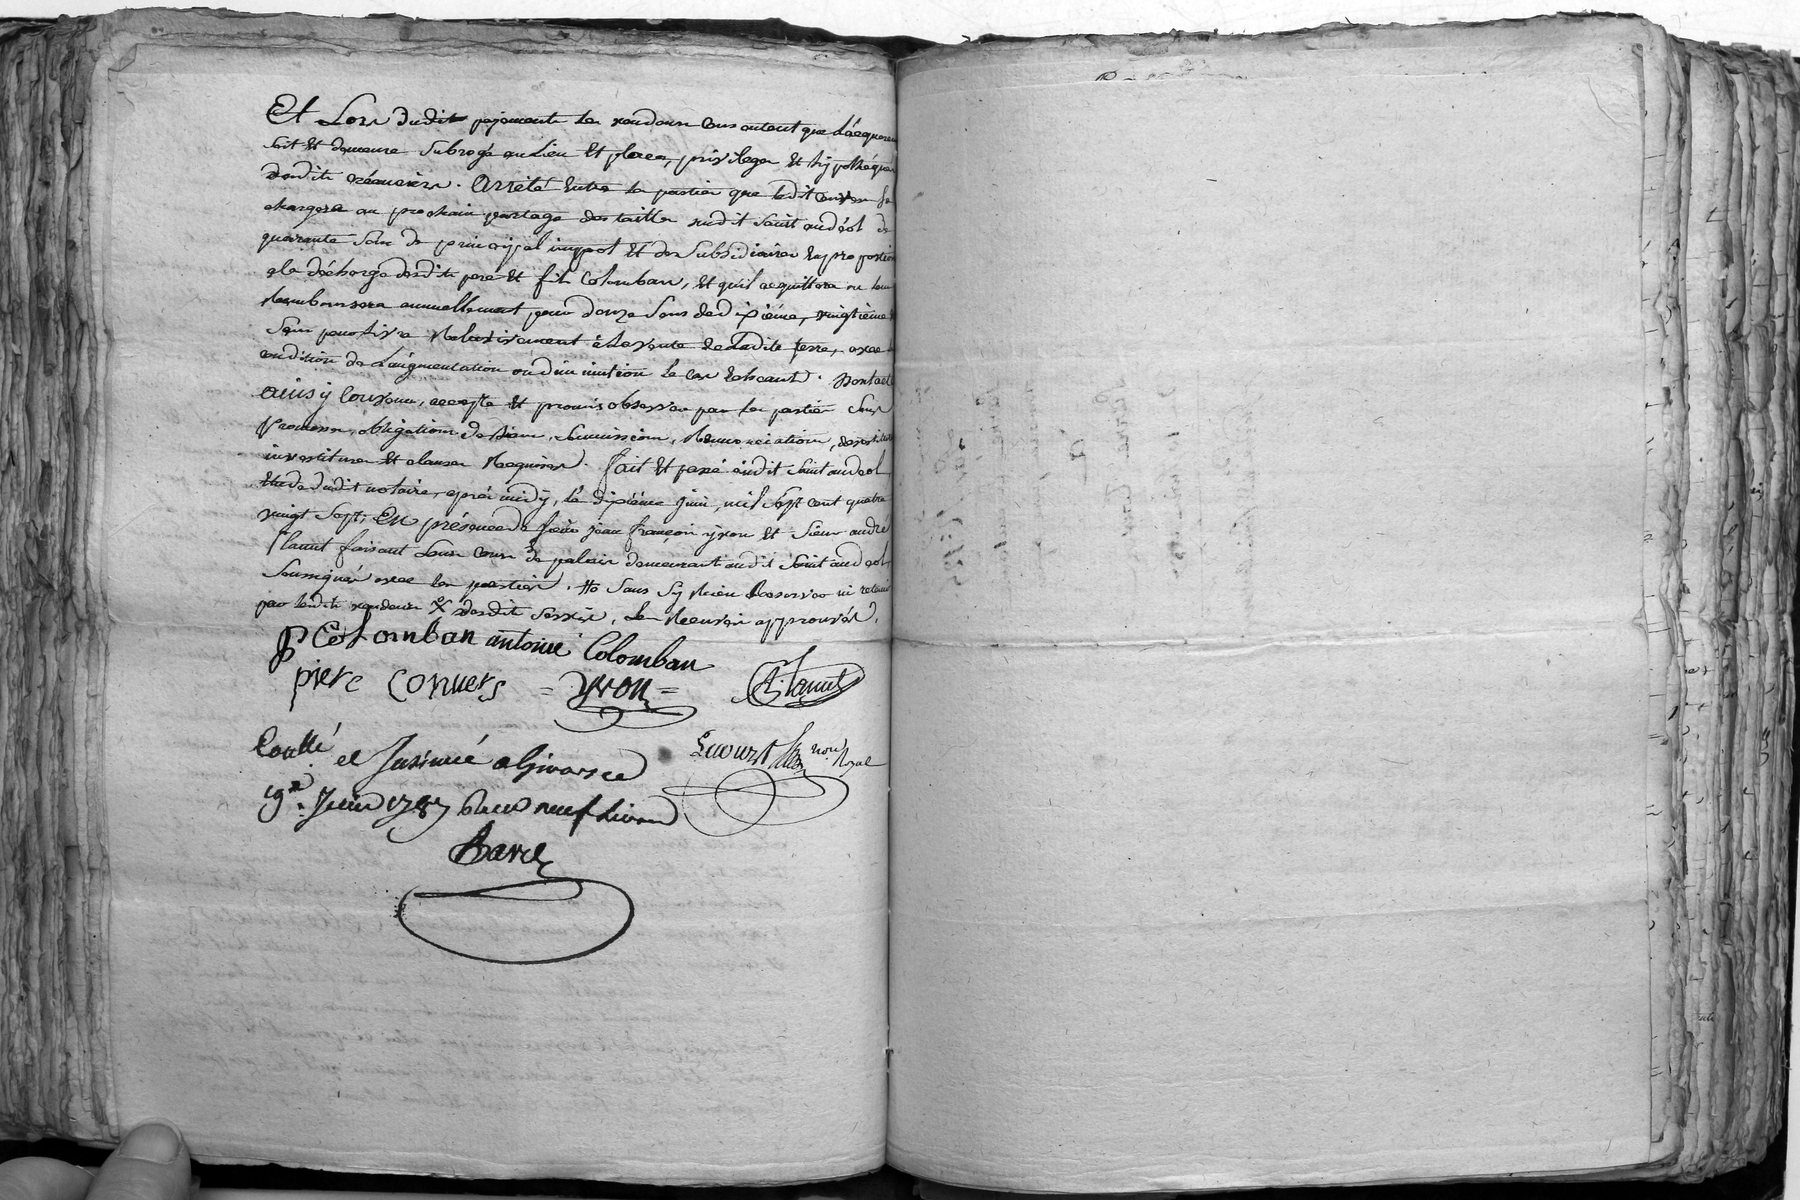 Et Lors dudit payement les vendeurs consentent que L'acquereur
soit Et demeure subrogé au Lieu Et place, privileges Et hypothéques
desdits créanciers. Arrété Entre les parties que ledit Convers se
chargera au prochain partage des tailles dudit Saint andéol de
quarante sols de principal impot Et des subsidiaires En proportion
a la décharge desdits pere Et fils Colomban, Et quil acquittera ou leur
Remboursera annuellement pour douze sous de dixième, vingtième
sous pour Livre Relativement à la vente de Ladite terre, avec
condition de L'augmentation ou diminution le cas Echeant.
ainsy Convenu, accepté Et promis observer par les parties sous
Promesses, obligations de biens, soumissions, Renonciations,
investitures Et clauses Requises. fait Et passé audit Saint andeol
Etude dudit notaire, aprés midy, le dixiéme juin, mil sept cent quatre
vingt sept, En présence de sieur jean françois yvon Et Sieur andré
flanut faisant Leurs cours de palais demeurant audit Saint andeol
soussignés avec les parties. # sans sy Rien Reserver ni retenir
par lesdits vendeurs x desdits services, Les Renvois approuvés.
P Colomban antoine Colomban
piere convers = yvon = A. flanut
Conllé et Insinué a Givors ce
19e. Juin 1787 Recu neuf Livres
not. Royal
Barel